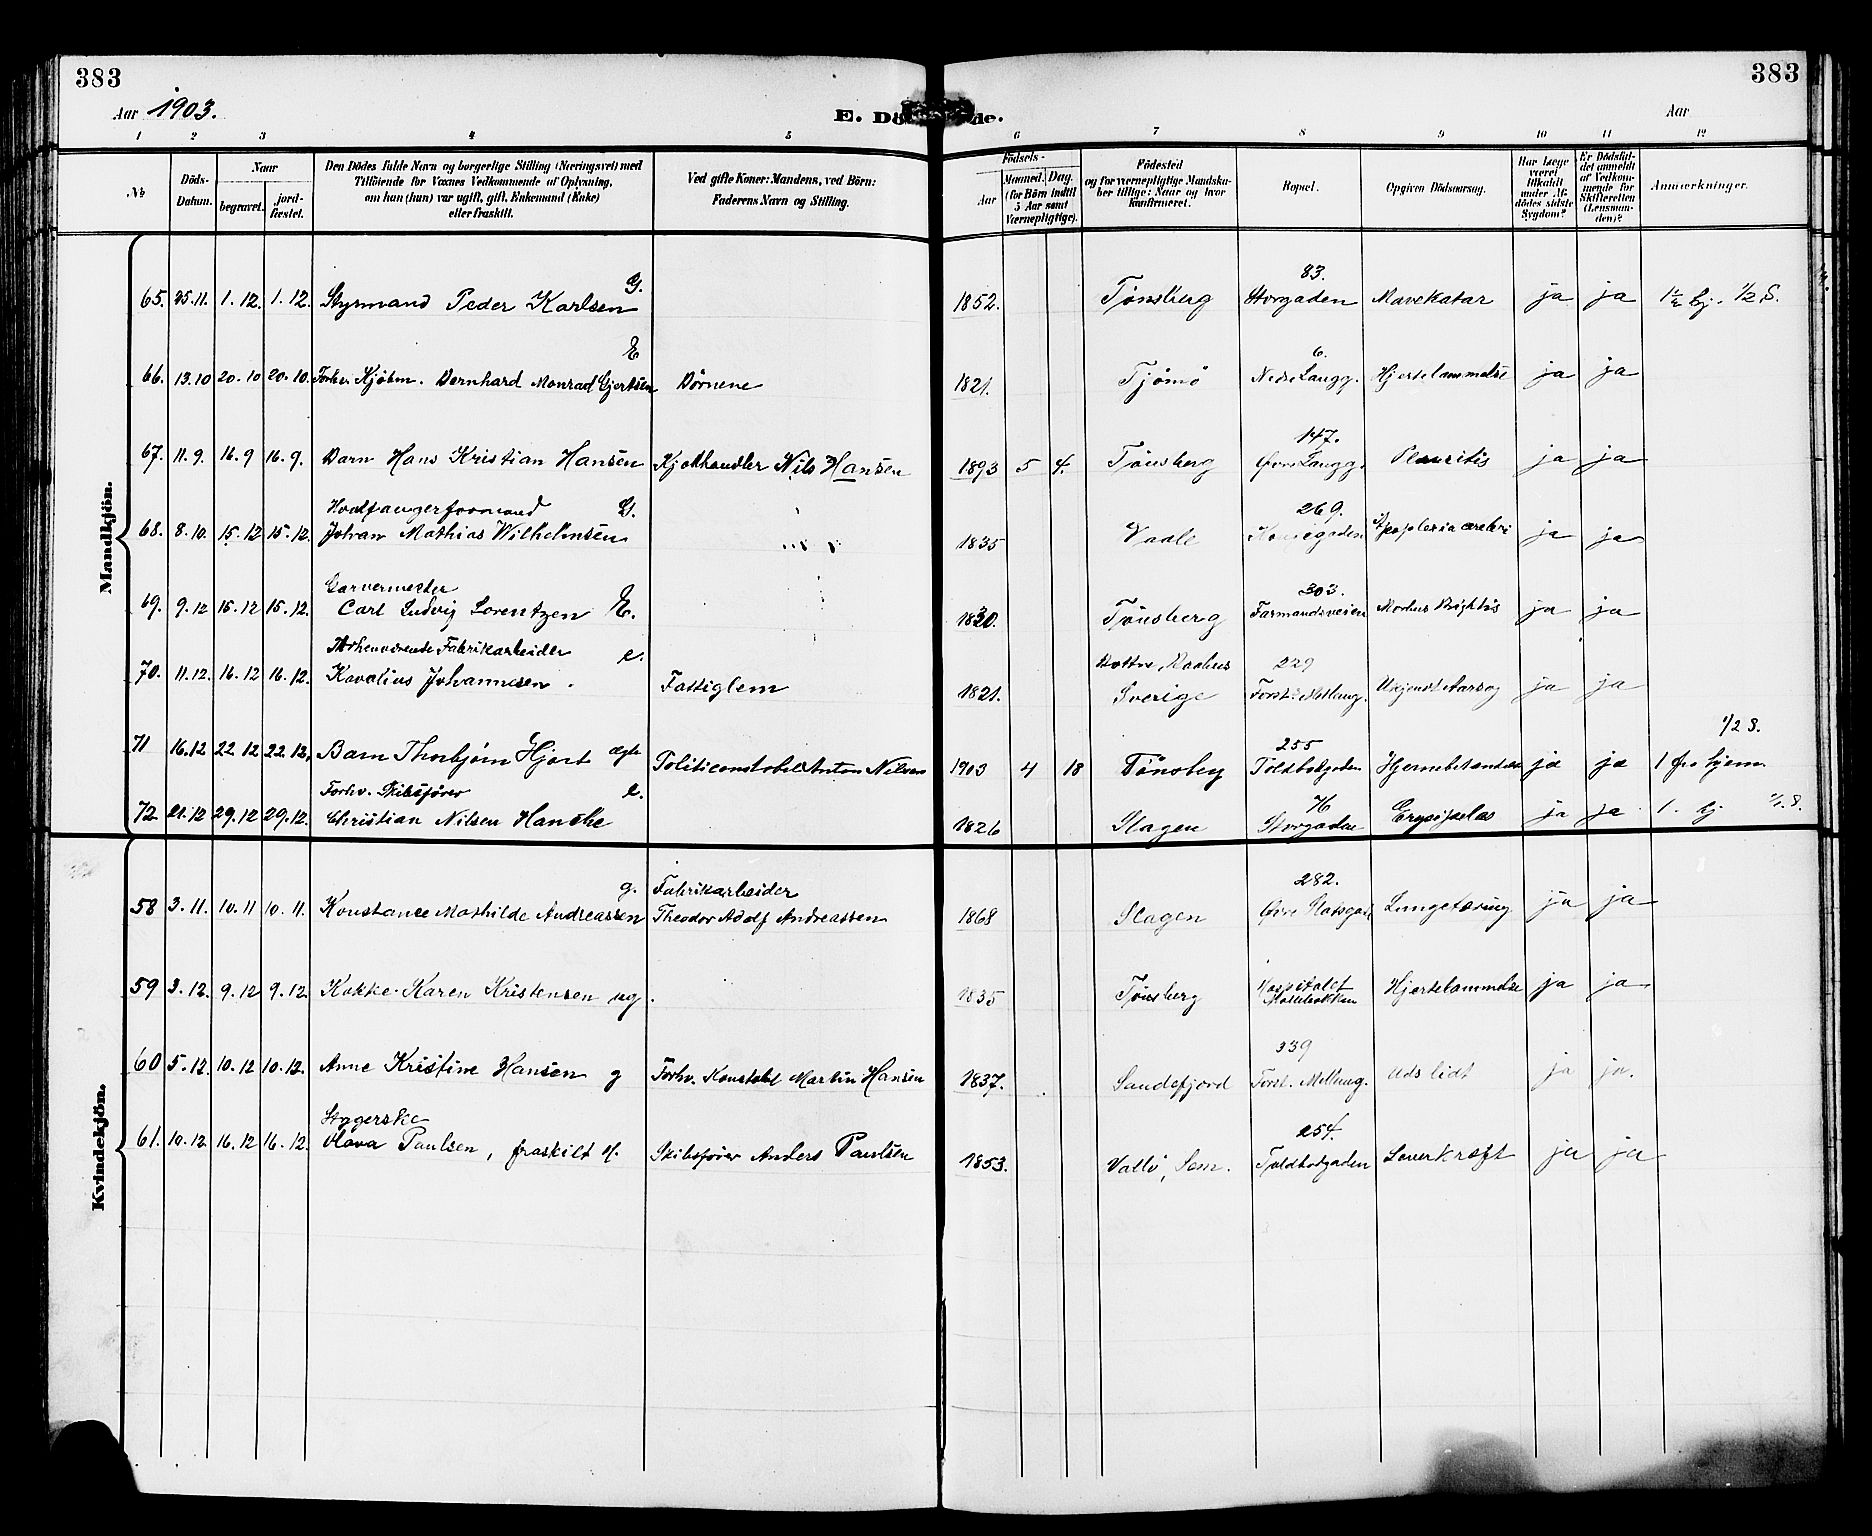 383
383
Aar 1903.
E. Dö de.
Aar
1 2 3 4 5 6 7 8 9 10 11 12
No
Döds-Datum.
Naar
begravet.
jord-fæstet.
Den Dödes fulde Navn og borgerlige Stilling (Næringsvei) med
Tilföiende for Voxnes Vedkommende af Oplysning,
om han (hun) var ugift, gift, Enkemand (Enke)
eller fraskilt.
Ved gifte Koner: Mandens, ved Börn:
Faderens Navn og Stilling.
Födsels-
Aar
Maaned. Dag.
(for Börn indtil
5 Aar samt
Værnepligtige).
Födested
og for værnepligtige Mandska-
ber tillige: Naar og hvor
konfirmeret.
Bopæl.
Opgiven Dödsaarsag.
Har Læge
været
tilkaldt
under Af-
dödes sidste
Sygdom?
Er Dödsfal-
det anmeldt
af Vedkom-
mende for
Skifteretten
(Lensman-
den)?
Anmærkninger.
Mandkjön.
G. 83.
65. 25.11. 1.12. 1.12. Styrmand Peder Karlsen 1852. Tønsberg Storgaden Mavekatar ja ja 1½ hj. ½ S.
E 6.
66. 13.10 20.10 20.10. Forhv. Kjøbm. Bernhard Monrad Gjertsen Børnene 1821. Tjömö Nedre Langg. Hjertelammelse ja ja
147.
67. 11.9. 16.9 16.9. Barn Hans Kristian Hansen Kjødhandler Nils Hansen 1893 5 4. Tønsberg Øvre Langg. Pleuritis ja ja
Hvalfangerformand G. 269.
68. 8.10. 15.12 15.12. Johan Mathias Wilhelmsen 1835 Vaale Kongegaden Apoplexia cerebri ja ja
Garvermester 303.
69. 9.12 15.12 15.12. Carl Ludvig Lorentzen E. 1830. Tønsberg Farmandsveien Morbus Brightis ja ja
Forhenværende Fabrikarbeider e. Dottne, Baahus 229
70. 11.12. 16.12 16.12. Kavelius Johannesen. Fattiglem 1821. Sverige Forst. Mellemg. Ukjendt Aarsag ja ja
255 1/2 S.
71 16.12 22.12 22.12. Barn Thorbjørn Hjort ægte Politiconstabel Anton Nilsen 1903 4 18 Tönsberg Toldbodgaden Hjernebetændelse ja ja 1 fra hjem
Forhv. Skibsfører e. 76
72 21.12 29.12 29.12. Christian Nilsen Hancke 1826 Slagen Storgaden Erysipelas ja ja 1. hj
Kvindekjön.
g. Fabrikarbeider 282.
58 3.11. 10.11 10.11. Konstance Mathilde Andreassen Theodor Adolf Andreassen 1868 Slagen Øvre Slotsgad Lungetæring ja ja
Hospitalet
59 3.12. 9.12 9.12. Kokke Karen Kristensen ug. 1835 Tønsberg Hjertelammelse ja ja
339
60 5.12. 10.12 10.12. Anne Kristine Hansen g Forhv. Konstabel Martin Hansen 1837. Sandefjord Forst. Mellemg. Udslidt ja ja.
Strygerske 254.
61. 10.12. 16.12 16.12. Olava Paulsen, fraskilt f. Skibsfører Anders Paulsen 1853. Vallö, Sem. Toldbodgaden Leverkræft ja ja